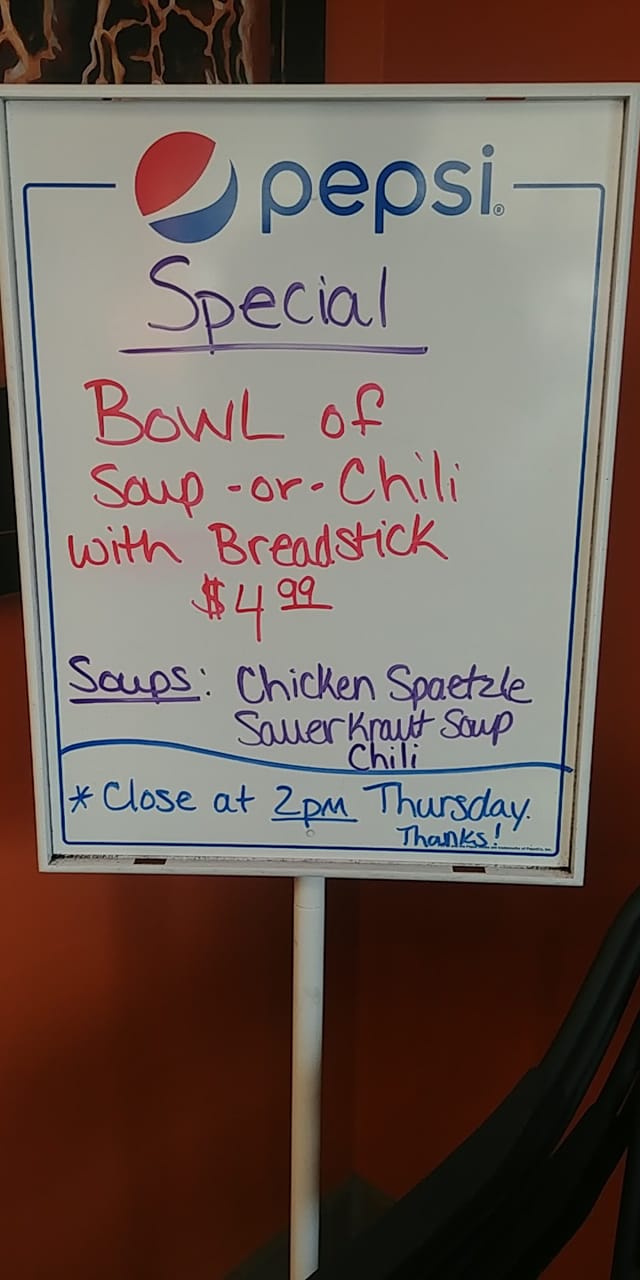 pepsi®
Special
BOWL of
Soup -or- Chili
with Breadstick
$4 99
Soups: Chicken Spaetzle
SauerKraut Soup
Chili
* Close at 2pm Thursday.
Thanks!